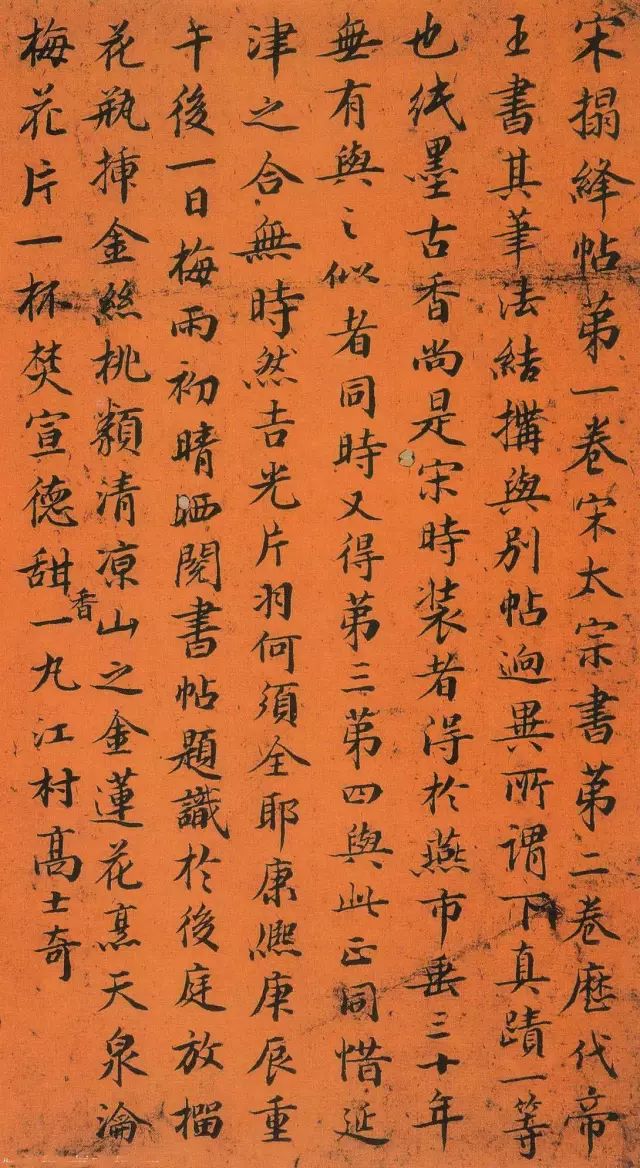 宋搨絳帖第一卷宋太宗書第二卷歷代帝
王書其筆法結搆與別帖迥異所謂下真蹟一等
也紙墨古香尚是宋時装者得於燕市垂三十年
無有與之似者同時又得第三第四與此正同惜延
津之合無時然吉光片羽何須全耶康熙庚辰重
午後一日梅雨初晴晒閱書帖題識於後庭放榴
花瓶揷金絲桃纇清凉山之金蓮花烹天泉瀹
梅花片一杯焚宣德甜香一丸江村高士奇